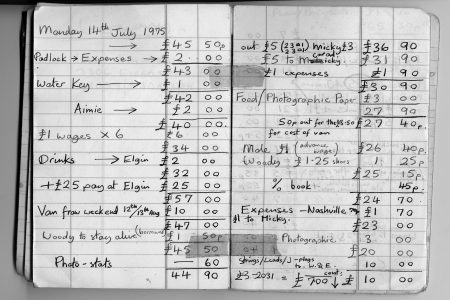 Monday 14th July 1975
→ £45 50p
Padlock → Expenses → £2. 00
£43 00
Water Key → £1 00
£42 00
Aimie → £2 00
£40 00
£1 wages x 6 £6 00
£34 00
Drinks → Elgin £2 00
£32 00
+£25 pay at Elgin £25 00
£57 00
Van fraw weekend 12th/13th Aug £10 00
£47 00
Woody to stay alive £1 50p
£45 50
Photo-stats — 60
44 90
out £5 Micky £3 £36 90
£5 to Micky. £31 90
£1 expenses £1 90
£30 90
Food/Photographic Paper £3 00
27 90
50p out for the £8.50 £27 40p
for cost of van
Mole £1 (advance wages) £26 40p
Woody £1.25 1 25p
£25 15p
% book 45p
£24 70
Expenses - Nashville £1 70
£1 to Micky. £23 00
Photographic. 3 00
£20 00
Strings/Leads/J-plugs to W.Q.E. £10 00
£3-2031 = £700 £10 00